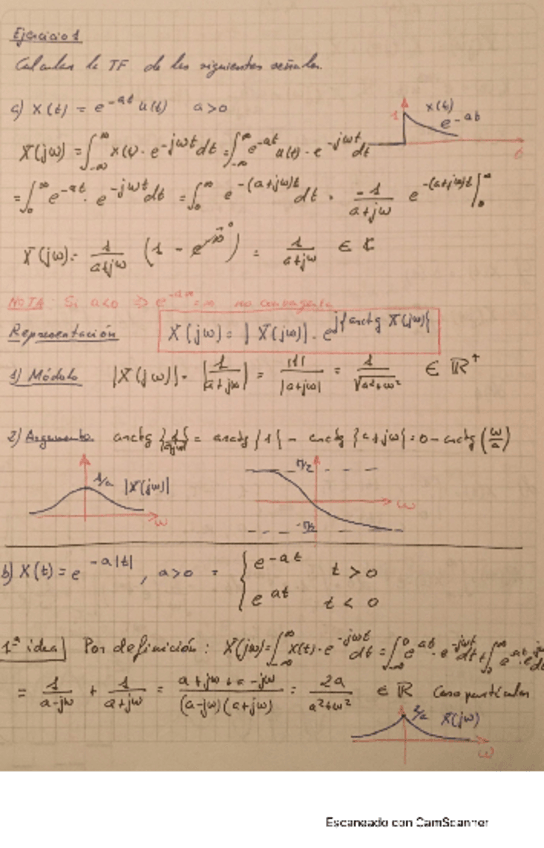 Ejercicio 1
Calcular la TF de las siguientes señales
a) x(t) = e^{-at} u(t) a>0
x(t)
e^{-at}
1
t
X(jω) = ∫_{-∞}^{∞} x(t) · e^{-jωt} dt = ∫_{-∞}^{∞} e^{-at} u(t) · e^{-jωt} dt
= ∫_0^∞ e^{-at} · e^{-jωt} dt = ∫_0^∞ e^{-(a+jω)t} dt = -1/(a+jω) e^{-(a+jω)t} |_0^∞
X(jω) = 1/(a+jω) (1 - e^{-∞}) = 1/(a+jω) ∈ ℂ
NOTA: Si a<0 ⇒ e^{-a∞} = ∞ no convergente
Representación X(jω) = |X(jω)| · e^{j{arctg X(jω)}}
1) Módulo |X(jω)| = |1/(a+jω)| = |1|/|a+jω| = 1/√(a²+ω²) ∈ ℝ⁺
2) Argumento arctg {1/(a+jω)} = arctg {1} - arctg {a+jω} = 0 - arctg (ω/a)
1/a |X(jω)| ω
π/2 -π/2 ω
b) X(t) = e^{-a|t|}, a>0 = { e^{-at} t > 0
e^{at} t < 0
1ª idea Por definición: X(jω) = ∫_{-∞}^{∞} x(t) · e^{-jωt} dt = ∫_{-∞}^0 e^{at} · e^{-jωt} dt + ∫_0^∞ e^{-at} · e^{-jωt} dt
= 1/(a-jω) + 1/(a+jω) = (a+jω+a-jω)/((a-jω)(a+jω)) = 2a/(a²+ω²) ∈ ℝ Caso particular
2/a X(jω)
ω
Escaneado con CamScanner